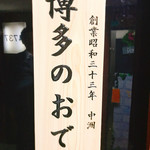 創業昭和三十三年　中洲
博多のおで